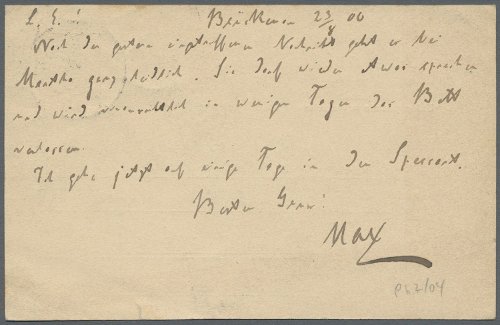 L. E.! Brückenau 23/8 00
Nach den gestern eingetroffenen Nachricht geht es bei
Martha ganz leidlich. Sie darf wieder etwas sprechen
und wird vermutlich in wenigen Tagen das Bett
verlassen.
Ich gehe jetzt auf einige Tage in den Spessart.
Besten Gruss!
Max
PS 2/04